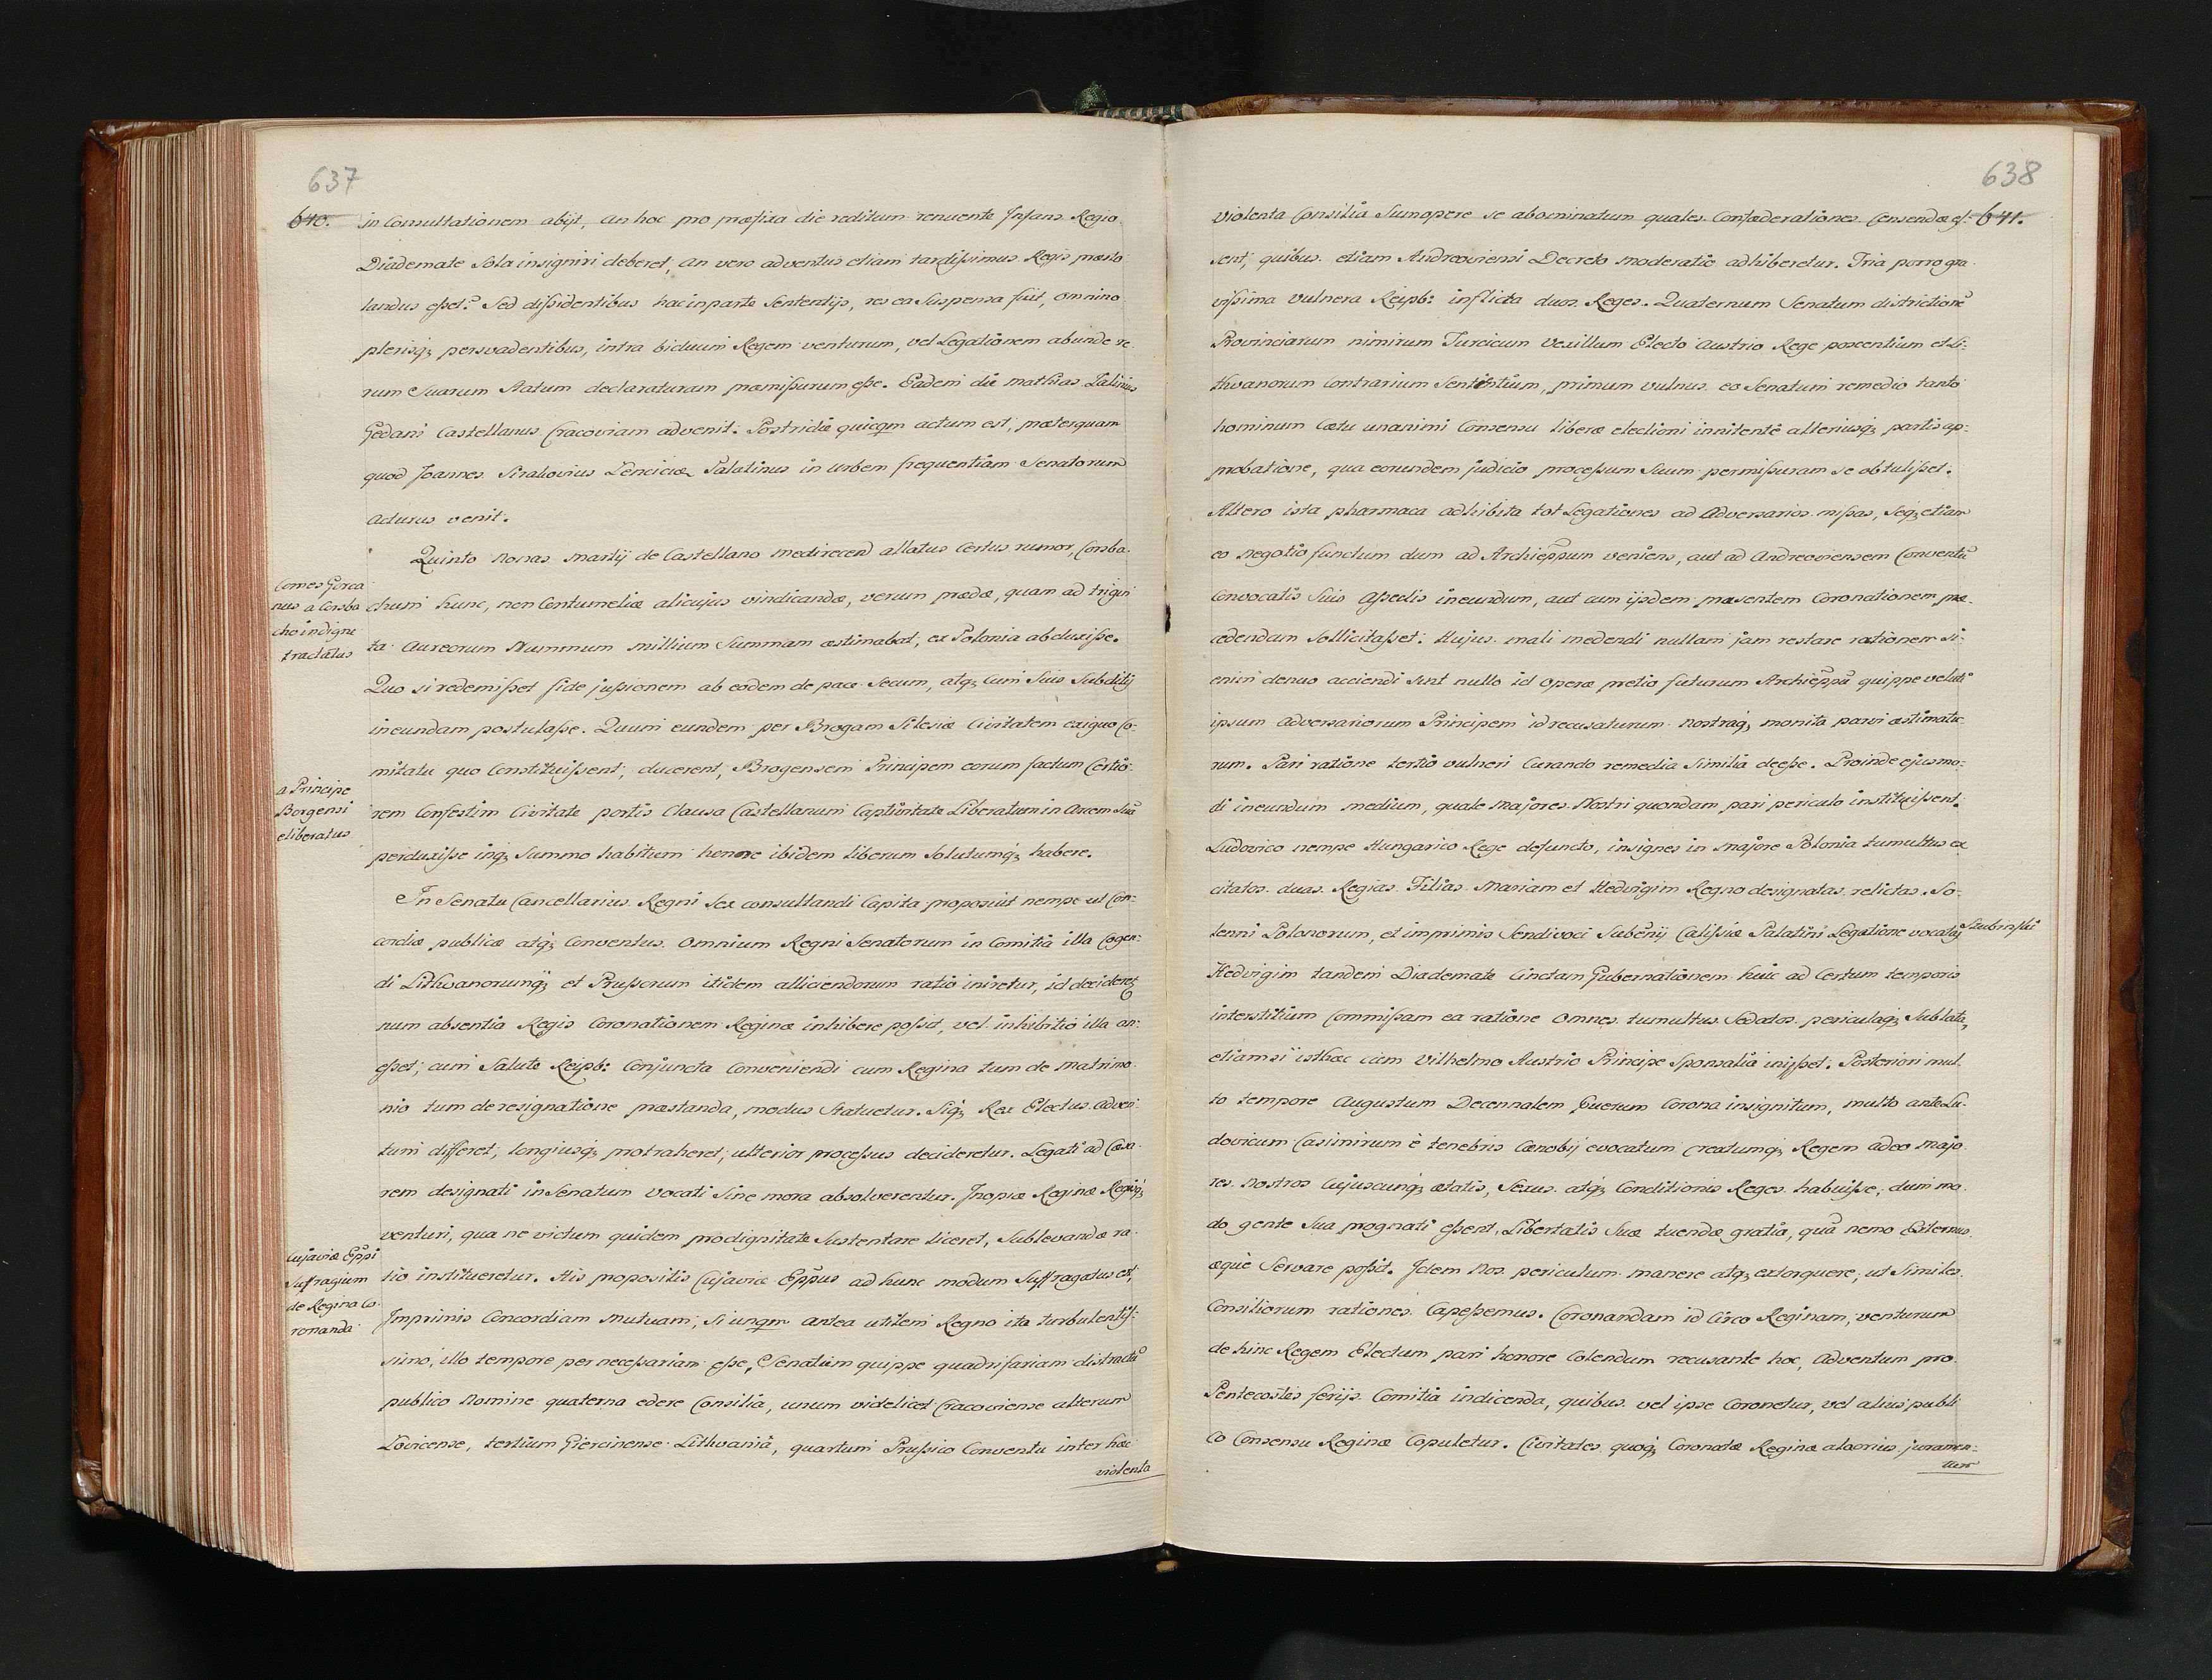 637
640.
in Consultationem abijt, an hoc pro præfixa die reditum renuente Infans Regio
Diademate Sola insigniri deberet, an vero adventus etiam tardissimus Regis præsto
landus esset? Sed dissidentibus hac in parte Sententijs, res ea Suspensa fuit, omnino
plerisq; persvadentibus, intra biduum Regem venturum, vel Legationem abunde re
rum Suarum Statum declaraturam præmissurum esse. Eadem die Mathias Zalinius
Gedani Castellanus Cracoviam advenit. Postridie quicqm actum est, præterquam
quod Joannes Sirakovius Lenciciæ Palatinus in Urbem frequentiam Senatorum
acturus venit.
Quinto Nonas Martij de Castellano Medirecen allatus Certus rumor, Corsba-
Comes Gorca
nus a Corsba
cho indigne
tractatus
chum hunc, non Contumeliæ alicujus vindicandæ, verum prædæ, quam ad trigin
ta Aureorum Nummum millium Summam æstimabat, ex Polonia abduxisse.
Quo si redemisset fide jussionem ab eodem de pace Secum, atq; cum Suis Subditis
ineundam postulasse. Quum eundem per Brogam Silesiæ Civitatem exiguo Co-
mitatu quo Constituissent, ducerent, Brogensem Principem eorum factum Certio-
a Principe
Borgensi
eliberatus
rem Confestim Civitate portis Clausa Castellanum Captivitate Liberatum in Arcem Suã
perduxisse inq; Summo habitum honore ibidem liberum Solutumq; habere.
In Senatu Cancellarius Regni Sex consultandi Capita proposuit nempe ut Con-
cordiæ publicæ atq; Conventus omnium Regni Senatorum in Comitia illa Cogen-
di Lithvanorumq; et Prussorum itidem alliciendorum ratio iniretur, id decideret
num absentia Regis Coronationem Reginæ inhibere possit, vel inhibitio illa an-
esset, cum Salute Reipb: Conjuncta Conveniendi cum Regina tum de Matrimo-
nio tum de resignatione præstanda, modus Statuetur. Siq; Rex Electus adven
tum differet, longiusq; protraheret, ulterior processus decideretur. Legati ad Cæsa-
rem designati in Senatum vocati Sine mora absolverentur. Inopiæ Reginæ Regisq;
venturi, qua ne victum quidem pro dignitate Sustentare liceret, Sublevandæ ra-
Cujaviæ Eppi
Suffragium
de Regina Co-
ronanda
tio institueretur. His propositis Cujaviæ Eppus ad hunc modum Suffragatus est,
Imprimis Concordiam mutuam, Si unqm antea utilem Regno ita turbulentis-
simo, illo tempore pernecessariam esse, Senatum quippe quadrifariam distractũ
publico Nomine quaterna edere Consilia, unum videlicet Cracoviense alterum
Lovicense, tertium Giercinense Lithvaniâ, quartum Prussico Conventu inter hæc
violenta
638
641.
violenta Consilia Sumopere se abominatum quales Confæderationes Censendæ es-
sent, quibus etiam Andreoviensi Decreto moderatio adhiberetur. Tria porro gra
vissima vulnera Reipb: inflicta duos Reges. Quaternum Senatum districtionẽ
Provinciarum nimirum Turcicum vexillum Electo Austrio Rege poscentium et Li-
thvanorum Contrarium Sentientium, primum vulnus eo Senatum remedio tanto
hominum Cætu unanimi Consensu liberæ electioni innitentẽ alteriusq; partis ap-
probatione, qua eorundem judicio processum Suum permissuram se obtulisset.
Altero ista pharmaca adhibita tot Legationes ad Adversarios missas, Seq; etiam
eo negotio functum dum ad Archieppum veniens, aut ad Andreoviensem Conventũ
Convocatis Suis Asseclis ineundum, aut cum ijsdem præsentem Coronationem præ-
cedendam Sollicitasset. Hujus mali medendi nullam jam restare rationem si-
enim denuo acciendi sint nullo id operæ pretio futurum Archieppũ quippe veluti
ipsum adversariorum Principem id recusaturum nostraq; monita parvi æstimatu-
rum. Pari ratione tertio vulneri Curando remedia Similia deesse. Proinde ejusmo-
di ineundum medium, quale Majores Nostri quondam pari periculo instituissent.
Ludovico nempe Hungarico Rege defuncto, insignes in Majore Polonia tumultus ex
citatos duas Regias Filias Mariam et Hedvigim Regno designatas relictas. So-
lenni Polonorum, et imprimis Sendivoci Subenij Calissiæ Palatini Legatione vocatas
Szubinski
Hedvigim tandem Diademate Cinctam Gubernationem huic ad Certum temporis
interstitium Commissam ea ratione omnes tumultus Sedatos periculaq; Sublata,
etiamsi isthæc cum Vilhelmo Austrio Principe Sponsalia inijsset. Posteriori mul-
to tempore Augustum Decennalem Puerum Corona insignitum, multo ante Lu-
dovicum Casimirum è tenebris Cænobij evocatum Creatumq; Regem adeo Majo
res nostros Cujuscunq; ætatis, Sexus atq; Conditionis Reges habuisse, dum mo-
do gente Sua prognati essent, Libertatis Suæ tuendæ gratia, quã nemo Externus
æque Servare possit. Idem Nos periculum manere atq; extorquere, ut Similes
Consiliorum rationes Capessemus. Coronandam id Circo Reginam, venturum
de hinc Regem Electum pari honore Colendum recusante hoc, Adventum pro
Pentecostes ferijs Comitia indicenda, quibus vel ipse Coronetur, vel alius publi
co Consensu Reginæ Copuletur. Civitates quoq; Coronatæ Reginæ alacrius juramen-
tum